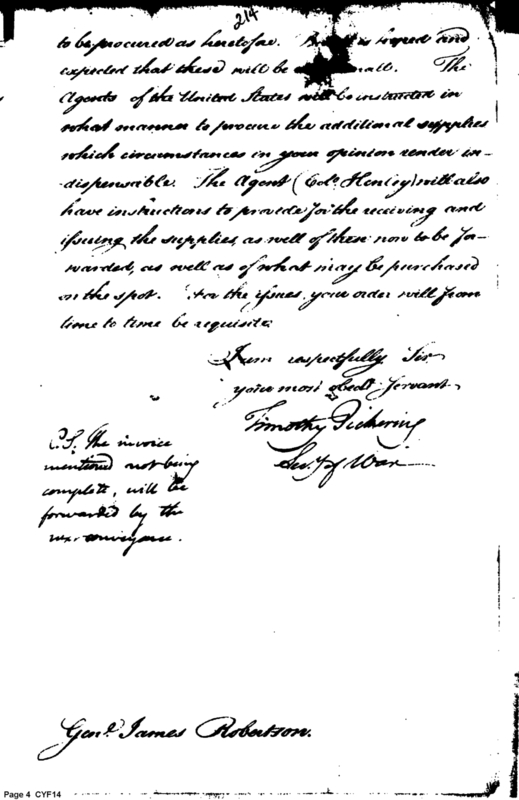 214
to be procured as heretofore. But it is hoped and
expected that these will be small. The
Agents of the United States will be instructed in
what manner to procure the additional supplies
which circumstances in your opinion render in-
dispensable. The Agent (Colo. Henley) will also
have instructions to provide for the receiving and
issuing the supplies, as well of these now to be for-
warded, as well as of what may be purchased
on the spot. For the issues, your order will from
time to time be requisite.
I am respectfully Sir
your most obedt. servant
Timothy Pickering
Secy. of War
P.S. The invoice
mentioned not being
complete, will be
forwarded by the
next conveyance.
Genl. James Robertson.
Page 4 CYF14